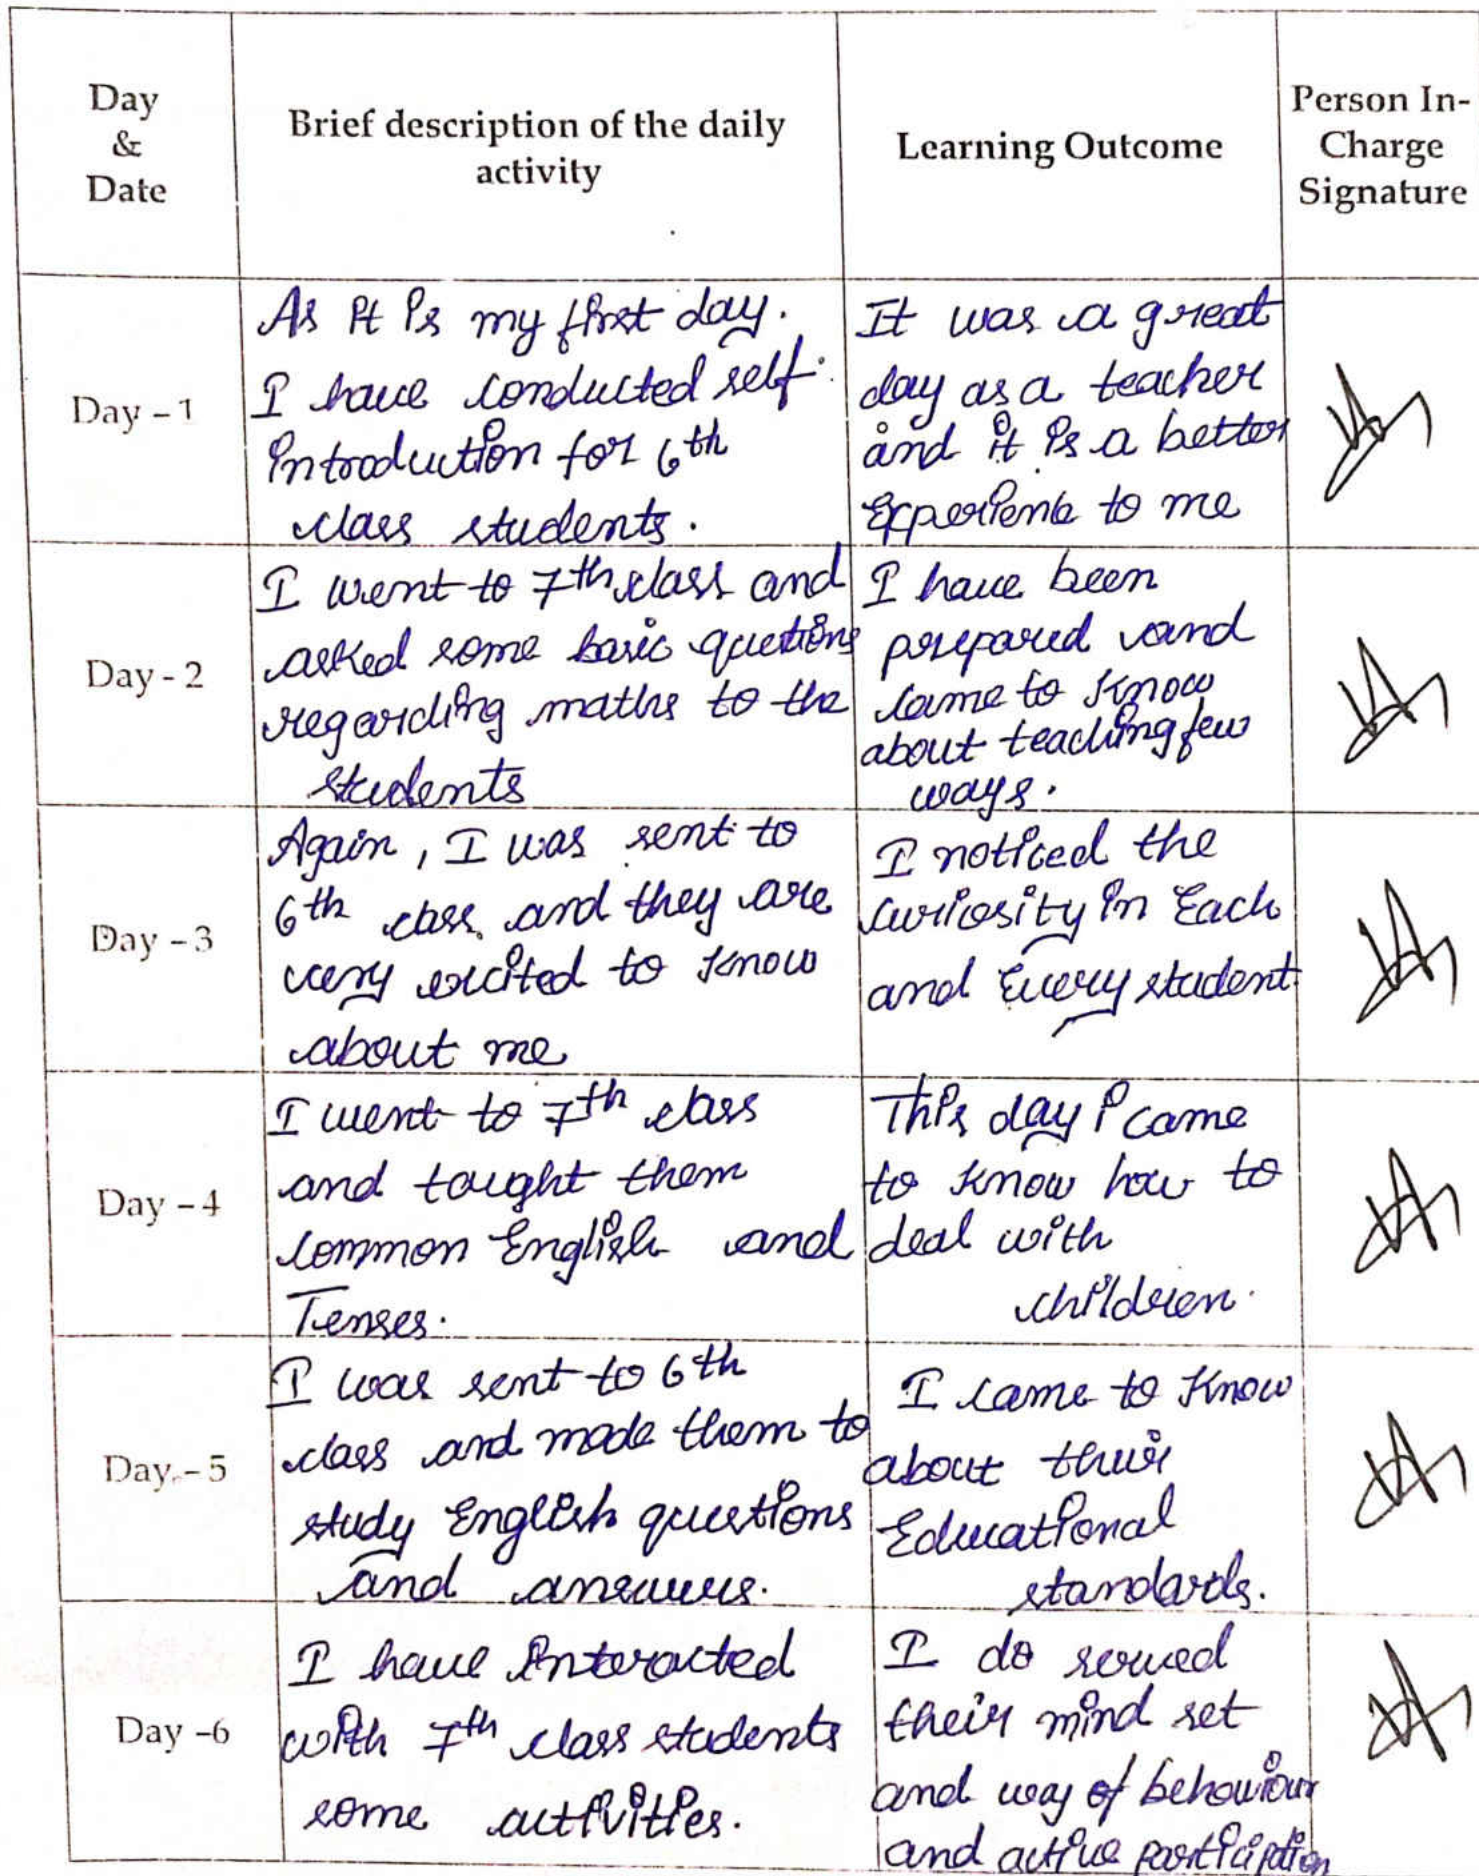 Day
&
Date
Brief description of the daily
activity
Learning Outcome
Person In-
Charge
Signature
Day - 1
As it is my first day.
I have conducted self
introduction for 6th
class students.
It was a great
day as a teacher
and it is a better
Experience to me
Day - 2
I went to 7th class and
asked some basic questions
regarding maths to the
students
I have been
prepared and
came to know
about teaching few
ways.
Day - 3
Again, I was sent to
6th class and they are
very excited to know
about me
I noticed the
curiosity in Each
and Every student
Day - 4
I went to 7th class
and taught them
common English and
Tenses.
This day i came
to know how to
deal with
children.
Day - 5
I was sent to 6th
class and made them to
study English questions
and answers.
I came to know
about their
Educational
standards.
Day -6
I have interacted
with 7th class students
some activities.
I do served
their mind set
and way of behaviour
and active participation